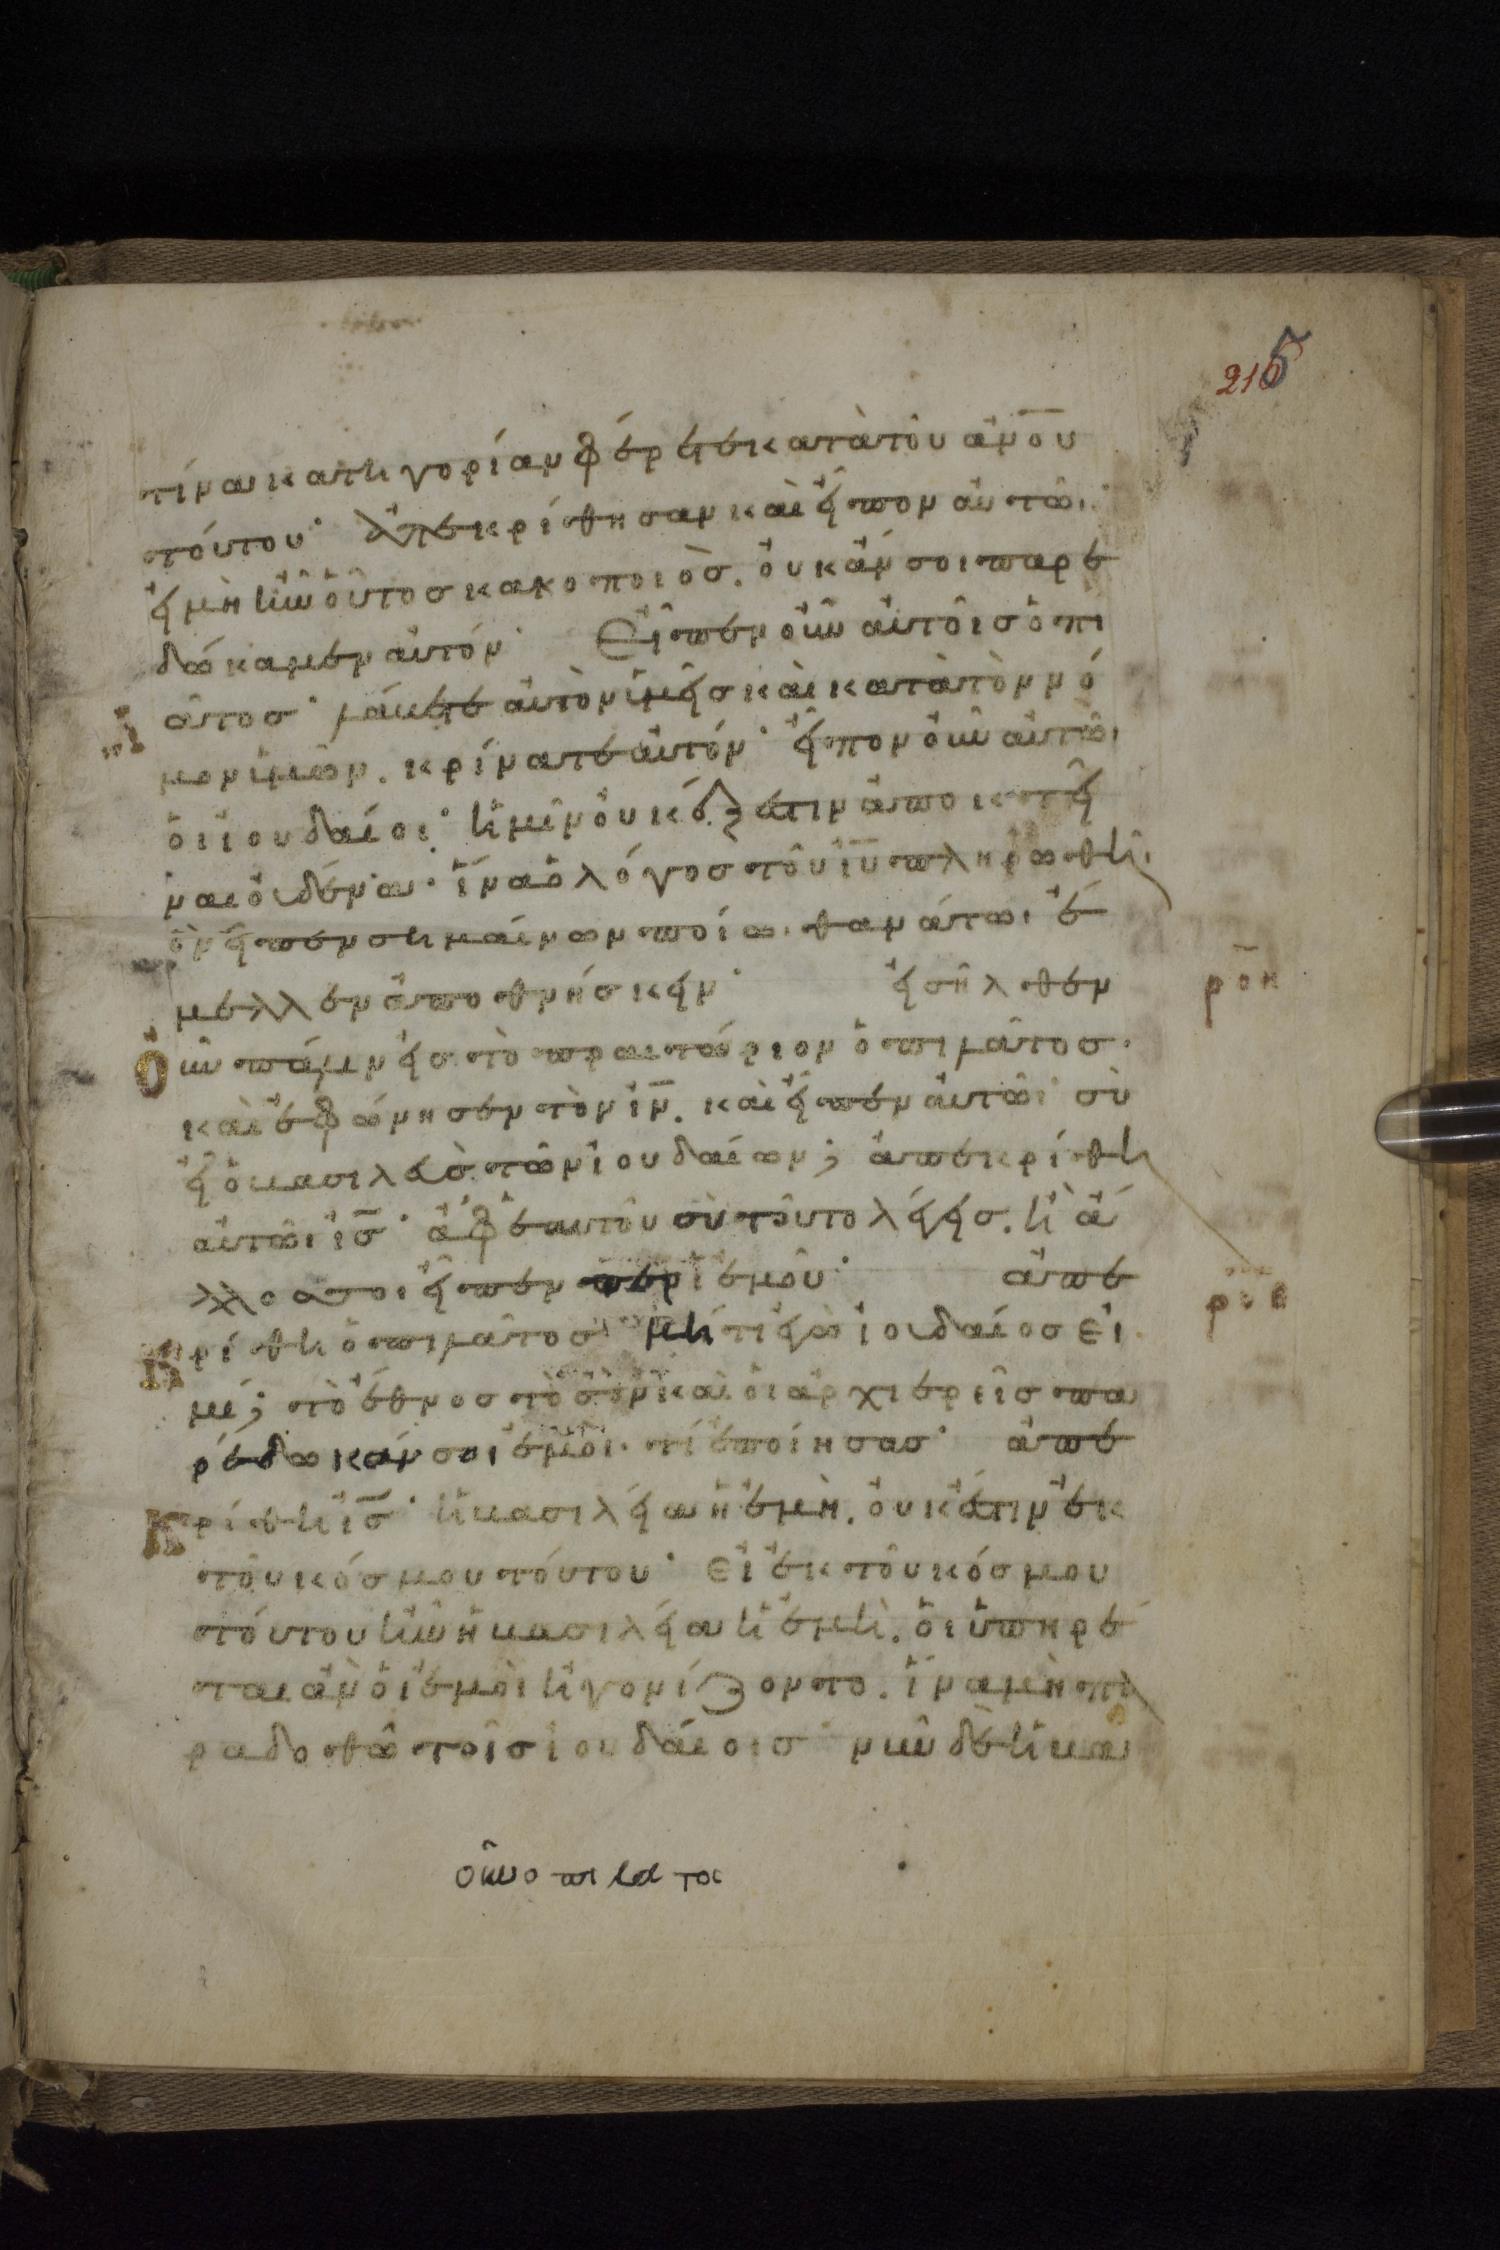 215
τίνα κατηγορίαν φέρετε κατὰ τοῦ ἀνου
τούτου· ἀπεκρίθησαν καὶ εἶπον αὐτῶι·
εἰ μὴ ἦν οὗτος κακοποιὸσ. οὐκ ἄν σοι παρε
δώκαμεν αὐτόν· Εἶπεν οὖν αὐτοῖσ ὁ πι
λᾶτοσ· λάβετε αὐτὸν ὑμεῖσ καὶ κατὰ τὸν νό
μον ὑμῶν. κρίνατε αὐτόν· εἶπον οὖν αὐτῶι
οἱ ἰουδαίοι· ἡμῖν οὐκ ἔξεστιν ἀποκτεῖ
ναι οὐδένα· ἵνα ὁ λόγοσ τοῦ ιυ πληρωθῆι.
ὃν εἶπεν σημαίνων ποίωι θανάτωι ἔ
μελλεν ἀποθνήσκειν· εἰσῆλθεν
οὖν πάλιν εἰσ τὸ πραιτώριον ὁ πιλᾶτοσ.
καὶ ἐφώνησεν τὸν ιν. καὶ εἶπεν αὐτῶι· σὺ
εἶ ὁ βασιλεὺσ τῶν ἰουδαίων; ἀπεκρίθη
αὐτῶι ισ· ἀφ' ἑαυτοῦ σὺ τοῦτο λέγεισ. ἢ ἄ
λλοσ σοι εἶπεν περὶ ἐμοῦ· ἀπε
κρίθη ὁ πιλᾶτοσ· μήτι ἐγὼ ἰουδαίοσ εἰ
μί; τὸ ἔθνοσ τὸ σὸν καὶ οἱ ἀρχιερεῖσ πα
ρέδωκάν σοι ἐμοὶ· τί ἐποίησασ· ἀπε
κρίθη ισ· ἡ βασιλεία ἡ ἐμὴ. οὐκ ἔστιν ἐκ
τοῦ κόσμου τούτου· εἰ ἐκ τοῦ κόσμου
τούτου ἦν ἡ βασιλεία ἡ ἐμὴ. οἱ ὑπηρέ
ται ἂν οἱ ἐμοὶ ἠγονίζοντο. ἵνα μὴ πα
ραδοθῶ τοῖσ ἰουδαίοισ· νῦν δὲ ἡ βα
ροη
ροθ
οὖν ο πιλατος